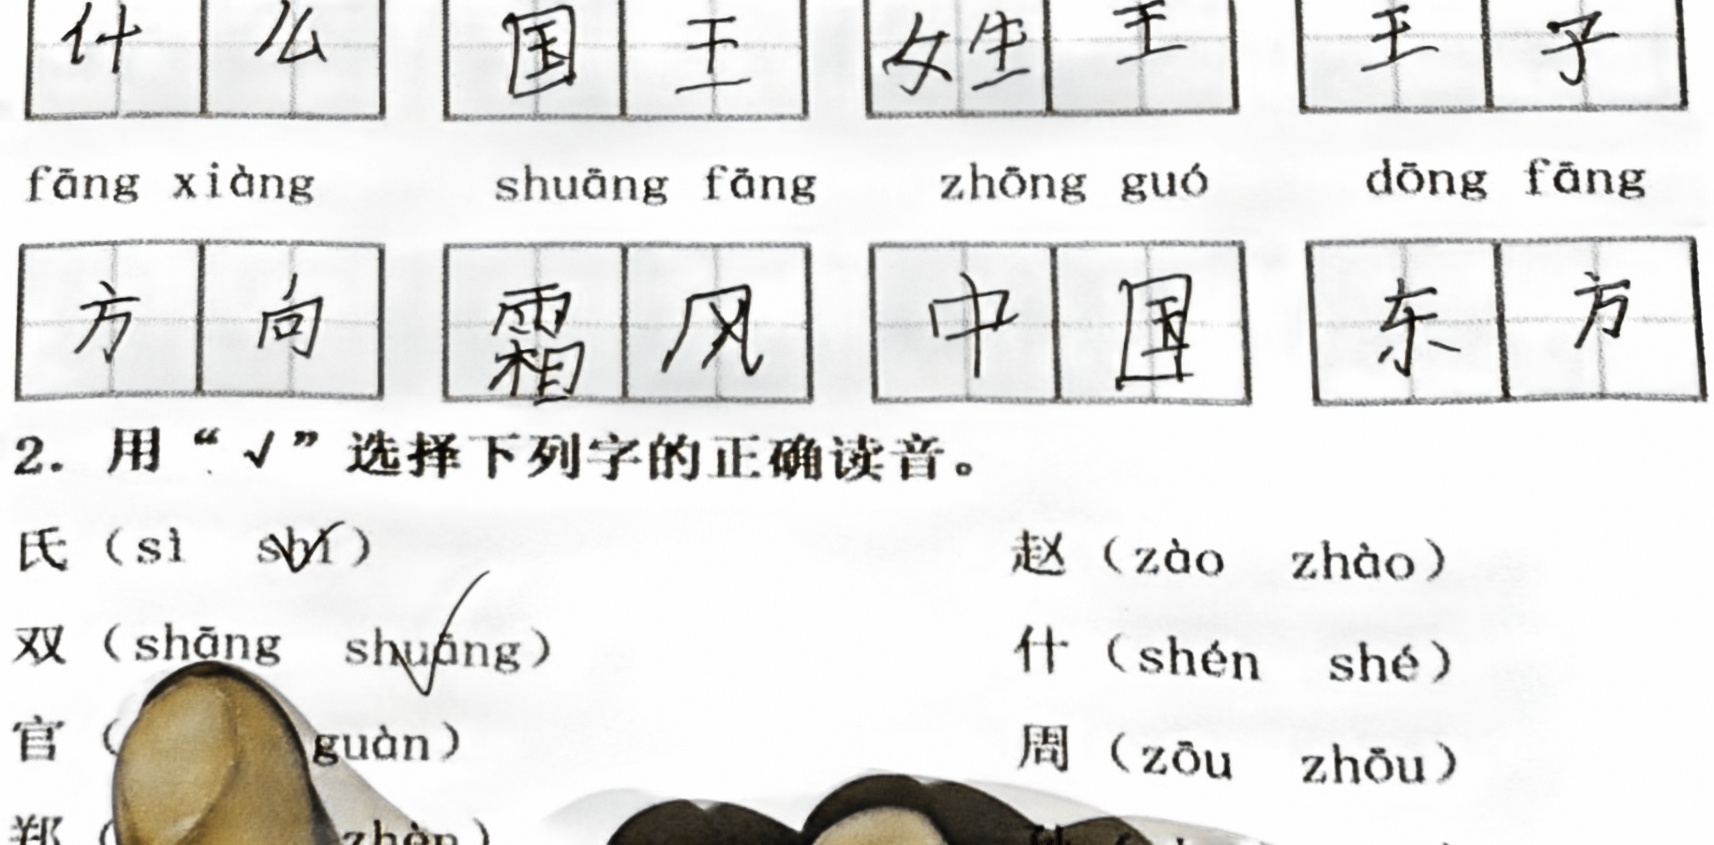 什么 国王 女生王 王子
fāng xiàng shuāng fāng zhōng guó dōng fāng
方向 霜风 中国 东方
2. 用“√”选择下列字的正确读音。
氏（sì shì） 赵（zào zhào）
双（shāng shuāng） 什（shén shé）
官（ guàn） 周（zōu zhōu）
郑（ zhèn）